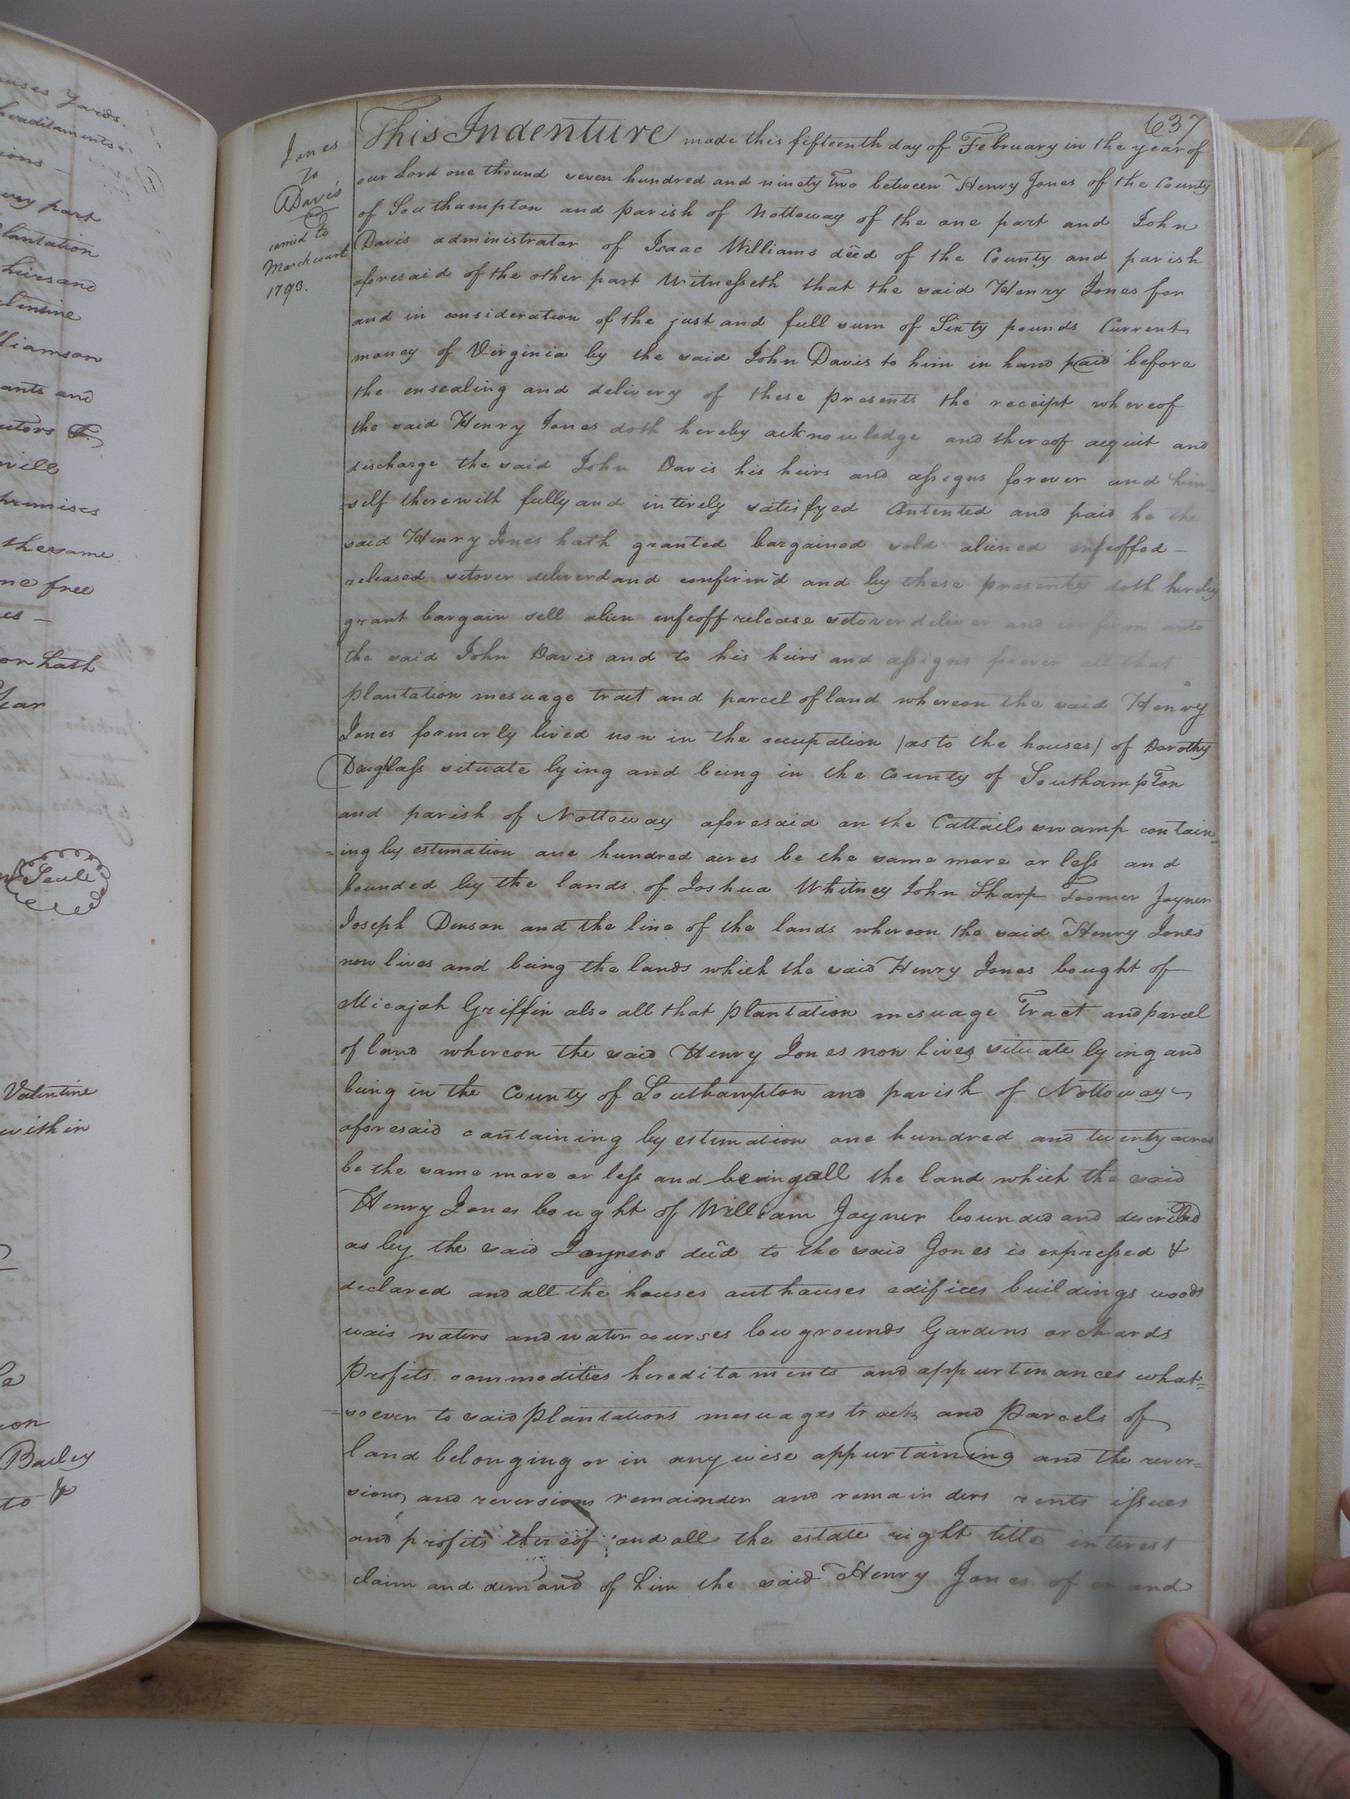 uses Yards.
hereditaments
ions
part
lantation
heirs and
lentine
lliamson
ants and
utors &
will
premises
the same
me free
es —
or hath
Year
Seale
Valentine
within
ion
Bailey
to &
637
Jones
to
Davis
March court
1793.
This Indenture made this fifteenth day of February in the year of
our Lord one thound seven hundred and ninety Two between Henry Jones of the County
of Southampton and parish of Nottoway of the one part and John
Davis administrator of Isaac Williams deēd of the County and parish
aforesaid of the other part Witnesseth that the said Henry Jones for
and in consideration of the just and full sum of Sixty pounds Current
money of Virginia by the said John Davis to him in hand paid before
the ensealing and delivery of these presents the receipt whereof
the said Henry Jones doth hereby acknowledge and thereof acquit and
discharge the said John Davis his heirs and assigns forever and him
-self therewith fully and intirely satisfyed Contented and paid he the
said Henry Jones hath granted bargained sold aliened enfeoffed —
released setover deliverd and confirm'd and by these presents doth hereby
grant bargain sell alien enfeoff release setover deliver and confirm unto
the said John Davis and to his heirs and assigns forever all that
plantation mesuage tract and parcel of land whereon the said Henry
Jones formerly lived now in the occupation /as to the houses/ of Dorothy
Douglass situate lying and being in the County of Southampton
and parish of Nottoway aforesaid on the Cattails swamp contain
-ing by estimation one hundred acres be the same more or less and
bounded by the lands of Joshua Whitney John Sharp Toomer Joyner
Joseph Denson and the line of the lands whereon the said Henry Jones
now lives and being the lands which the said Henry Jones bought of
Micajah Griffin also all that plantation mesuage Tract and parcel
of land whereon the said Henry Jones now lives situate lying and
being in the County of Southampton and parish of Nottoway
aforesaid containing by estimation one hundred and twenty acres
be the same more or less and being all the land which the said
Henry Jones bought of William Joyner bounded and described
as by the said Joyners deēd to the said Jones is expressed &
declared and all the houses outhouses edifices buildings woods
wais waters and water courses low grounds Gardens orchards
Profits commodities hereditaments and appurtinances what=
=soever to said plantations mesuages tracts and Parcels of
land belonging or in any wise appurtaining and the rever=
sions and reversions remainder and remainders rents issues
and profits thereof and all the estate right title interest
claim and demand of him the said Henry Jones of in and